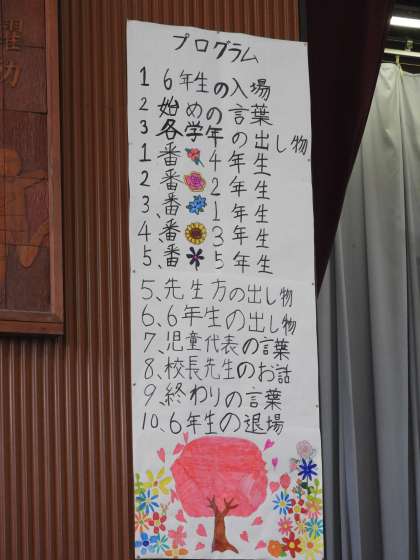 プログラム
1 6年生の入場
2 始めの言葉
3 各学年の出し物
1番 4年生
2番 2年生
3、番 1年生
4、番 3年生
5、番 5年生
5、先生方の出し物
6、6年生の出し物
7、児童代表の言葉
8、校長先生のお話
9、終わりの言葉
10、6年生の退場